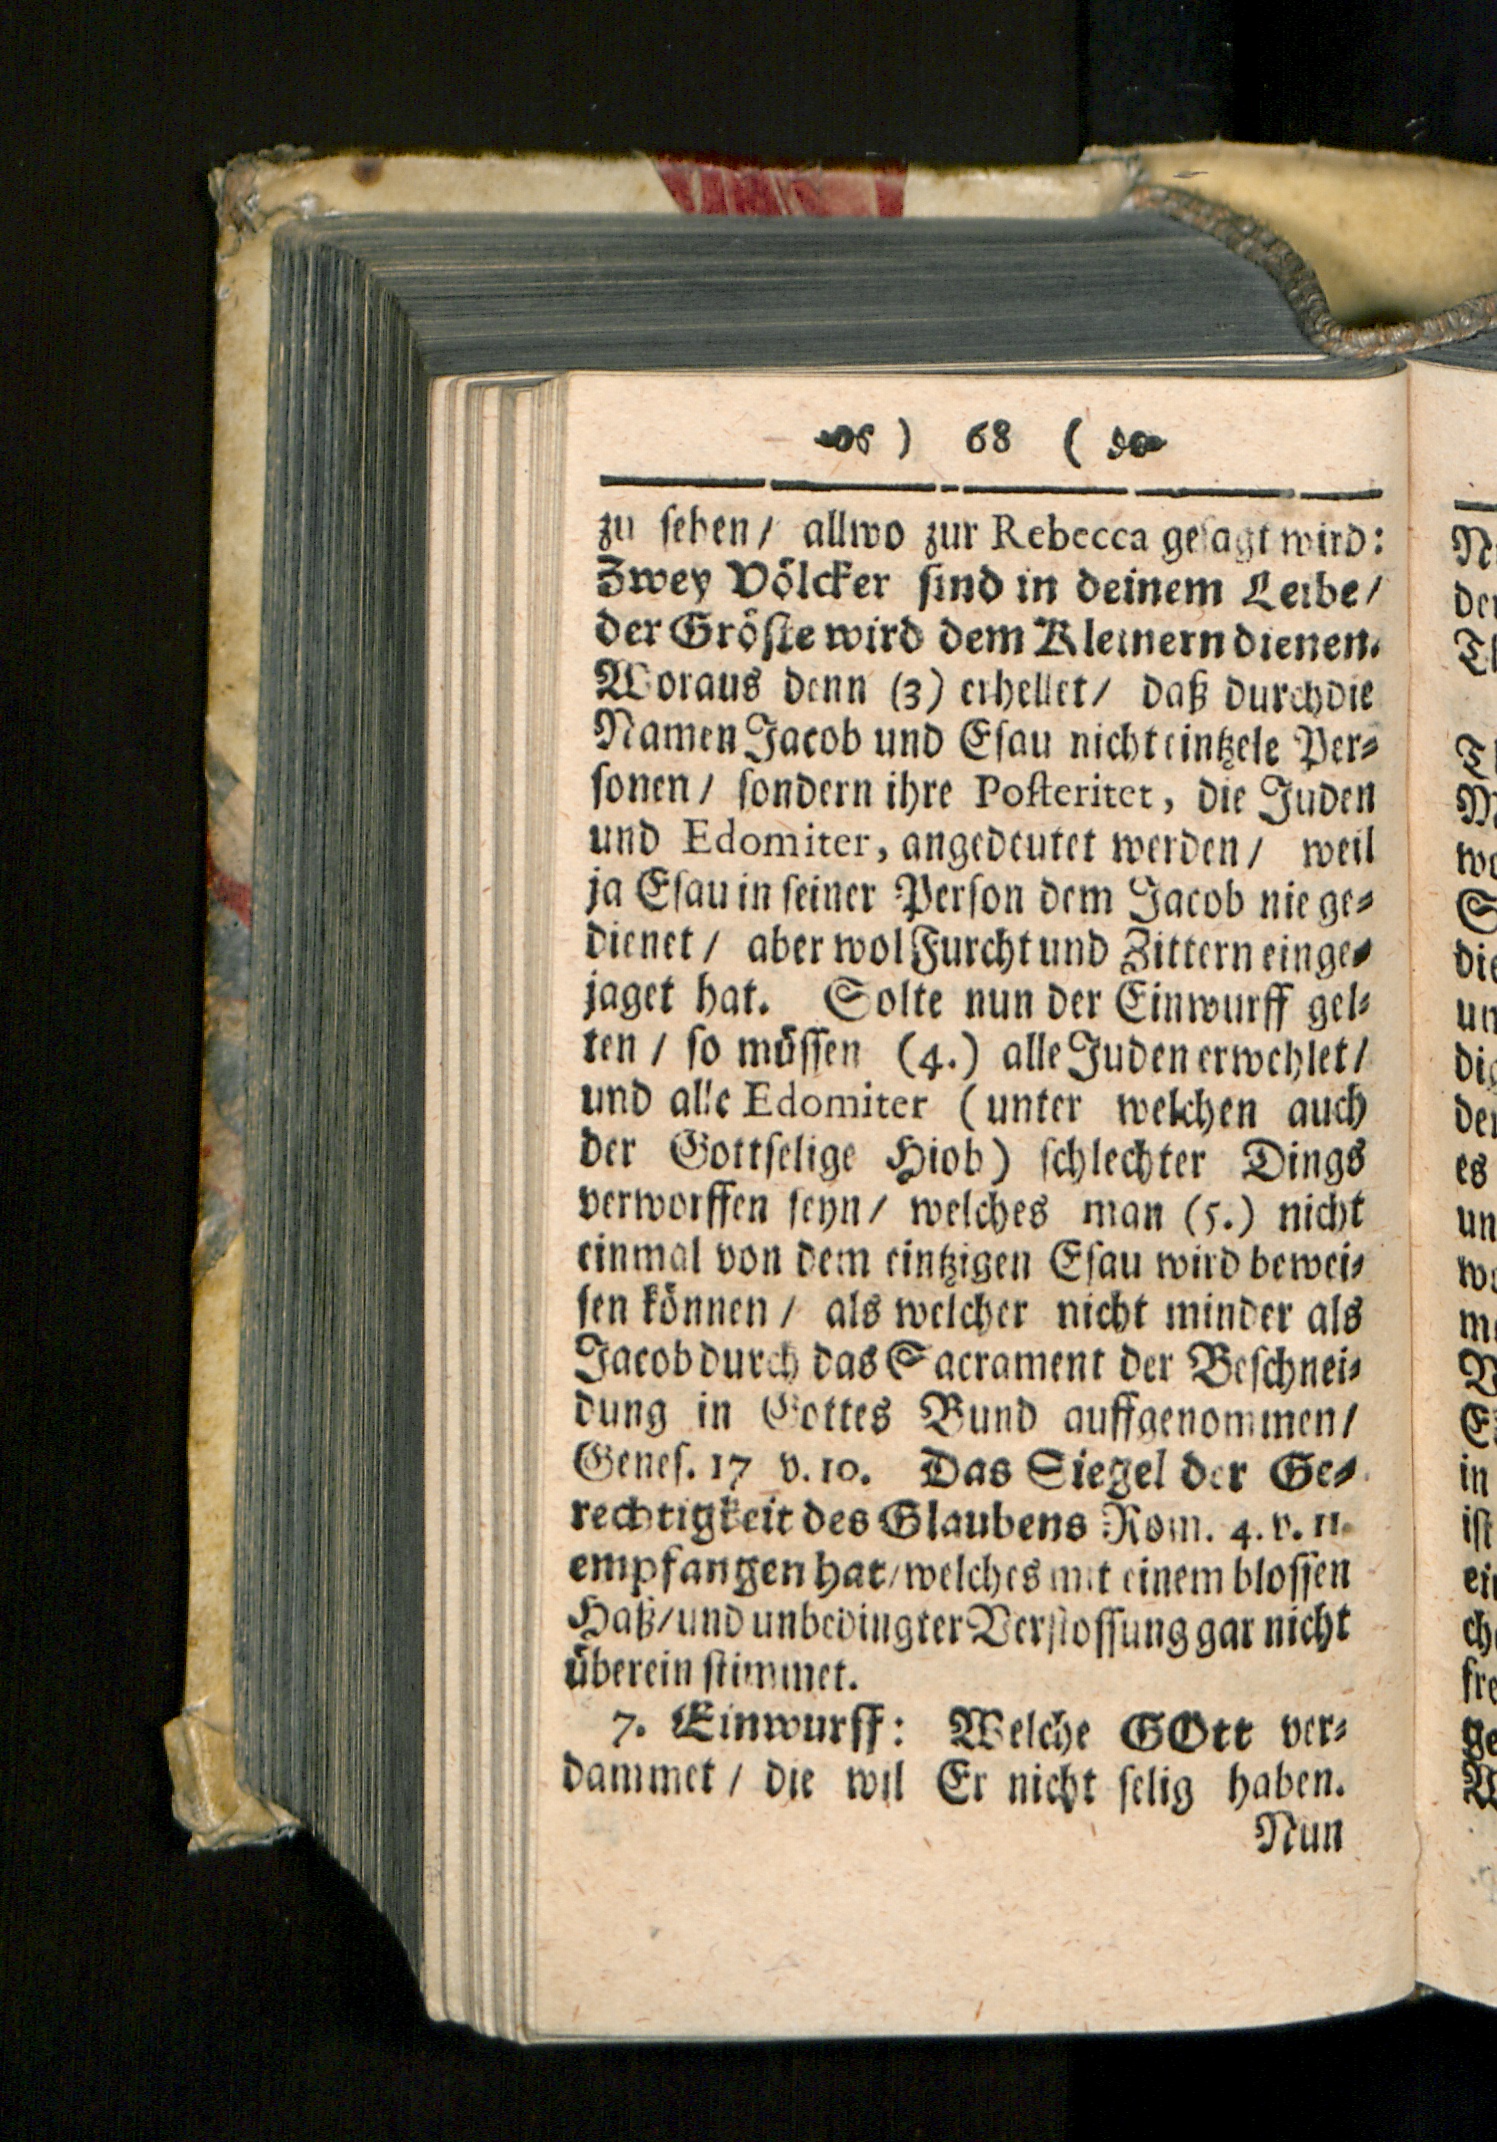 ) 68 (
zu sehen / allwo zur Rebecca gesagt wird:
Zwey Völcker sind in deinem Leibe /
der Gröste wird dem Kleinern dienen.
Woraus denn (3) erhellet / daß durch die
Namen Jacob und Esau nicht eintzele Per-
sonen / sondern ihre Posteritet, die Juden
und Edomiter, angedeutet werden / weil
ja Esau in seiner Person dem Jacob nie ge-
dienet / aber wol Furcht und Zittern einge-
jaget hat. Solte nun der Einwurff gel-
ten / so müssen (4.) alle Juden erwehlet /
und alle Edomiter (unter welchen auch
der Gottselige Hiob) schlechter Dings
verworffen seyn / welches man (5.) nicht
einmal von dem eintzigen Esau wird bewei-
sen können / als welcher nicht minder als
Jacob durch das Sacrament der Beschnei-
dung in Gottes Bund auffgenommen /
Genes. 17 v. 10. Das Siegel der Ge-
rechtigkeit des Glaubens Rom. 4. v. 11.
empfangen hat / welches mit einem blossen
Haß / und unbedingter Verstossung gar nicht
überein stimmet.
7. Einwurff: Welche GOtt ver-
dammet / die wil Er nicht selig haben.
Nun